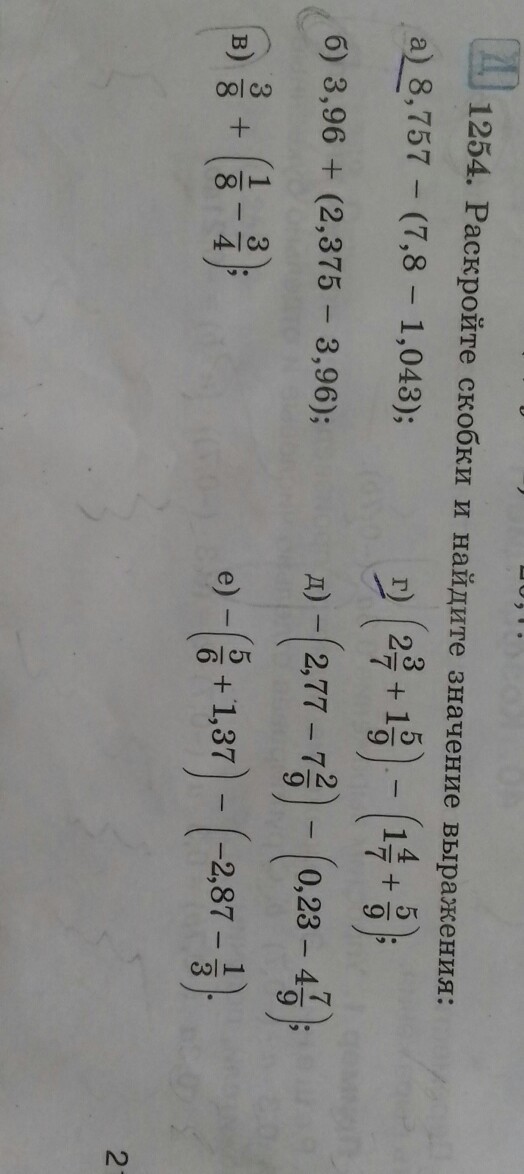 Д 1254. Раскройте скобки и найдите значение выражения:
а) 8,757 − (7,8 − 1,043);
б) 3,96 + (2,375 − 3,96);
в) 3/8 + (1/8 − 3/4);
г) (2 3/7 + 1 5/9) − (1 4/7 + 5/9);
д) −(2,77 − 7 2/9) − (0,23 − 4 7/9);
е) −(5/6 + 1,37) − (−2,87 − 1/3).